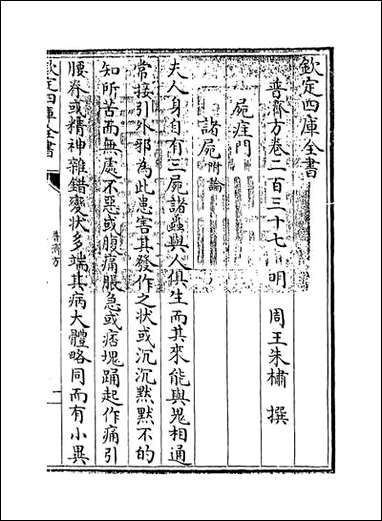 欽定四庫全書
普濟方卷二百三十七　明　周王朱橚　撰
屍疰門
諸屍附論
夫人身自有三屍諸蟲與人俱生而其來能與鬼相通
常接引外邪為此患害其發作之状或沉沉默默不的
知所苦而無處不惡或腹痛脹急或痞塊踊起作痛引
腰脊或精神雜錯變状多端其病大體略同而有小異
欽定四庫全書
普濟方
一